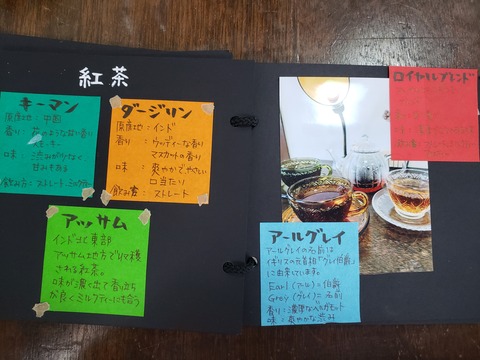 紅茶
キーマン
原産地：中国
香り：花のような甘い香り
スモーキー
味：渋みが少なく
甘みを有る
飲み方：ストレート・ミルクティー
ダージリン
原産地：インド
香り：ウッディーな香り
マスカットの香り
味 爽やかでやさしい
口当たり
飲み方：ストレート
アッサム
インド北東部
アッサム地方で収穫
される紅茶。
味が濃く出て香り立ち
が良くミルクティーにも合う
ロイヤルブレンド
アールグレイ
アールグレイの名前は
イギリスの元首相「グレイ伯爵」
に由来しています。
Earl（アール）＝伯爵
Grey（グレイ）＝名前
香り：濃厚なベルガモット
味：爽やかな渋み